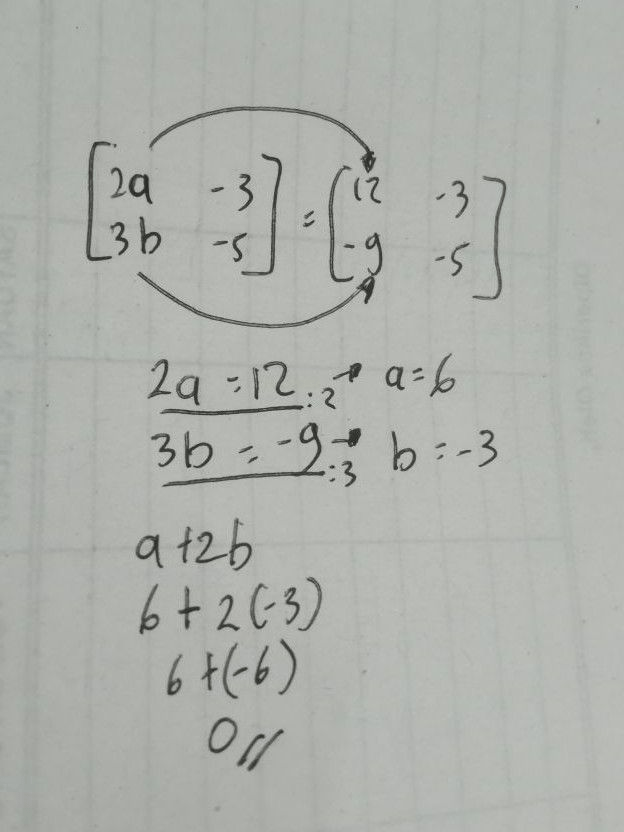 [2a -3] = [12 -3]
[3b -5] [-9 -5]
2a = 12 :2 → a = 6
3b = -9 :3 → b = -3
a + 2b
6 + 2(-3)
6 + (-6)
0 //